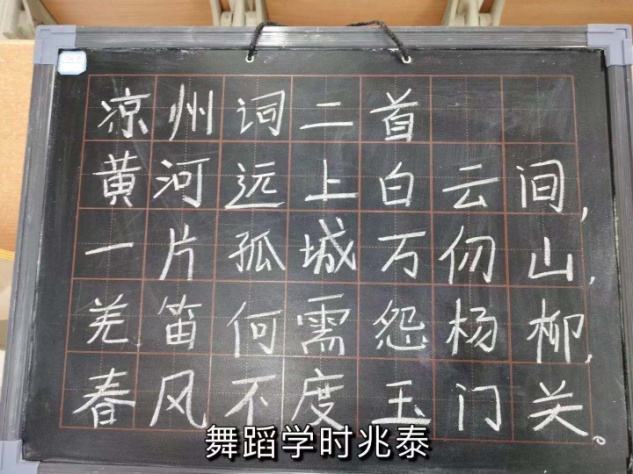 凉州词二首
黄河远上白云间,
一片孤城万仞山,
羌笛何需怨杨柳,
春风不度玉门关。
舞蹈学时兆泰